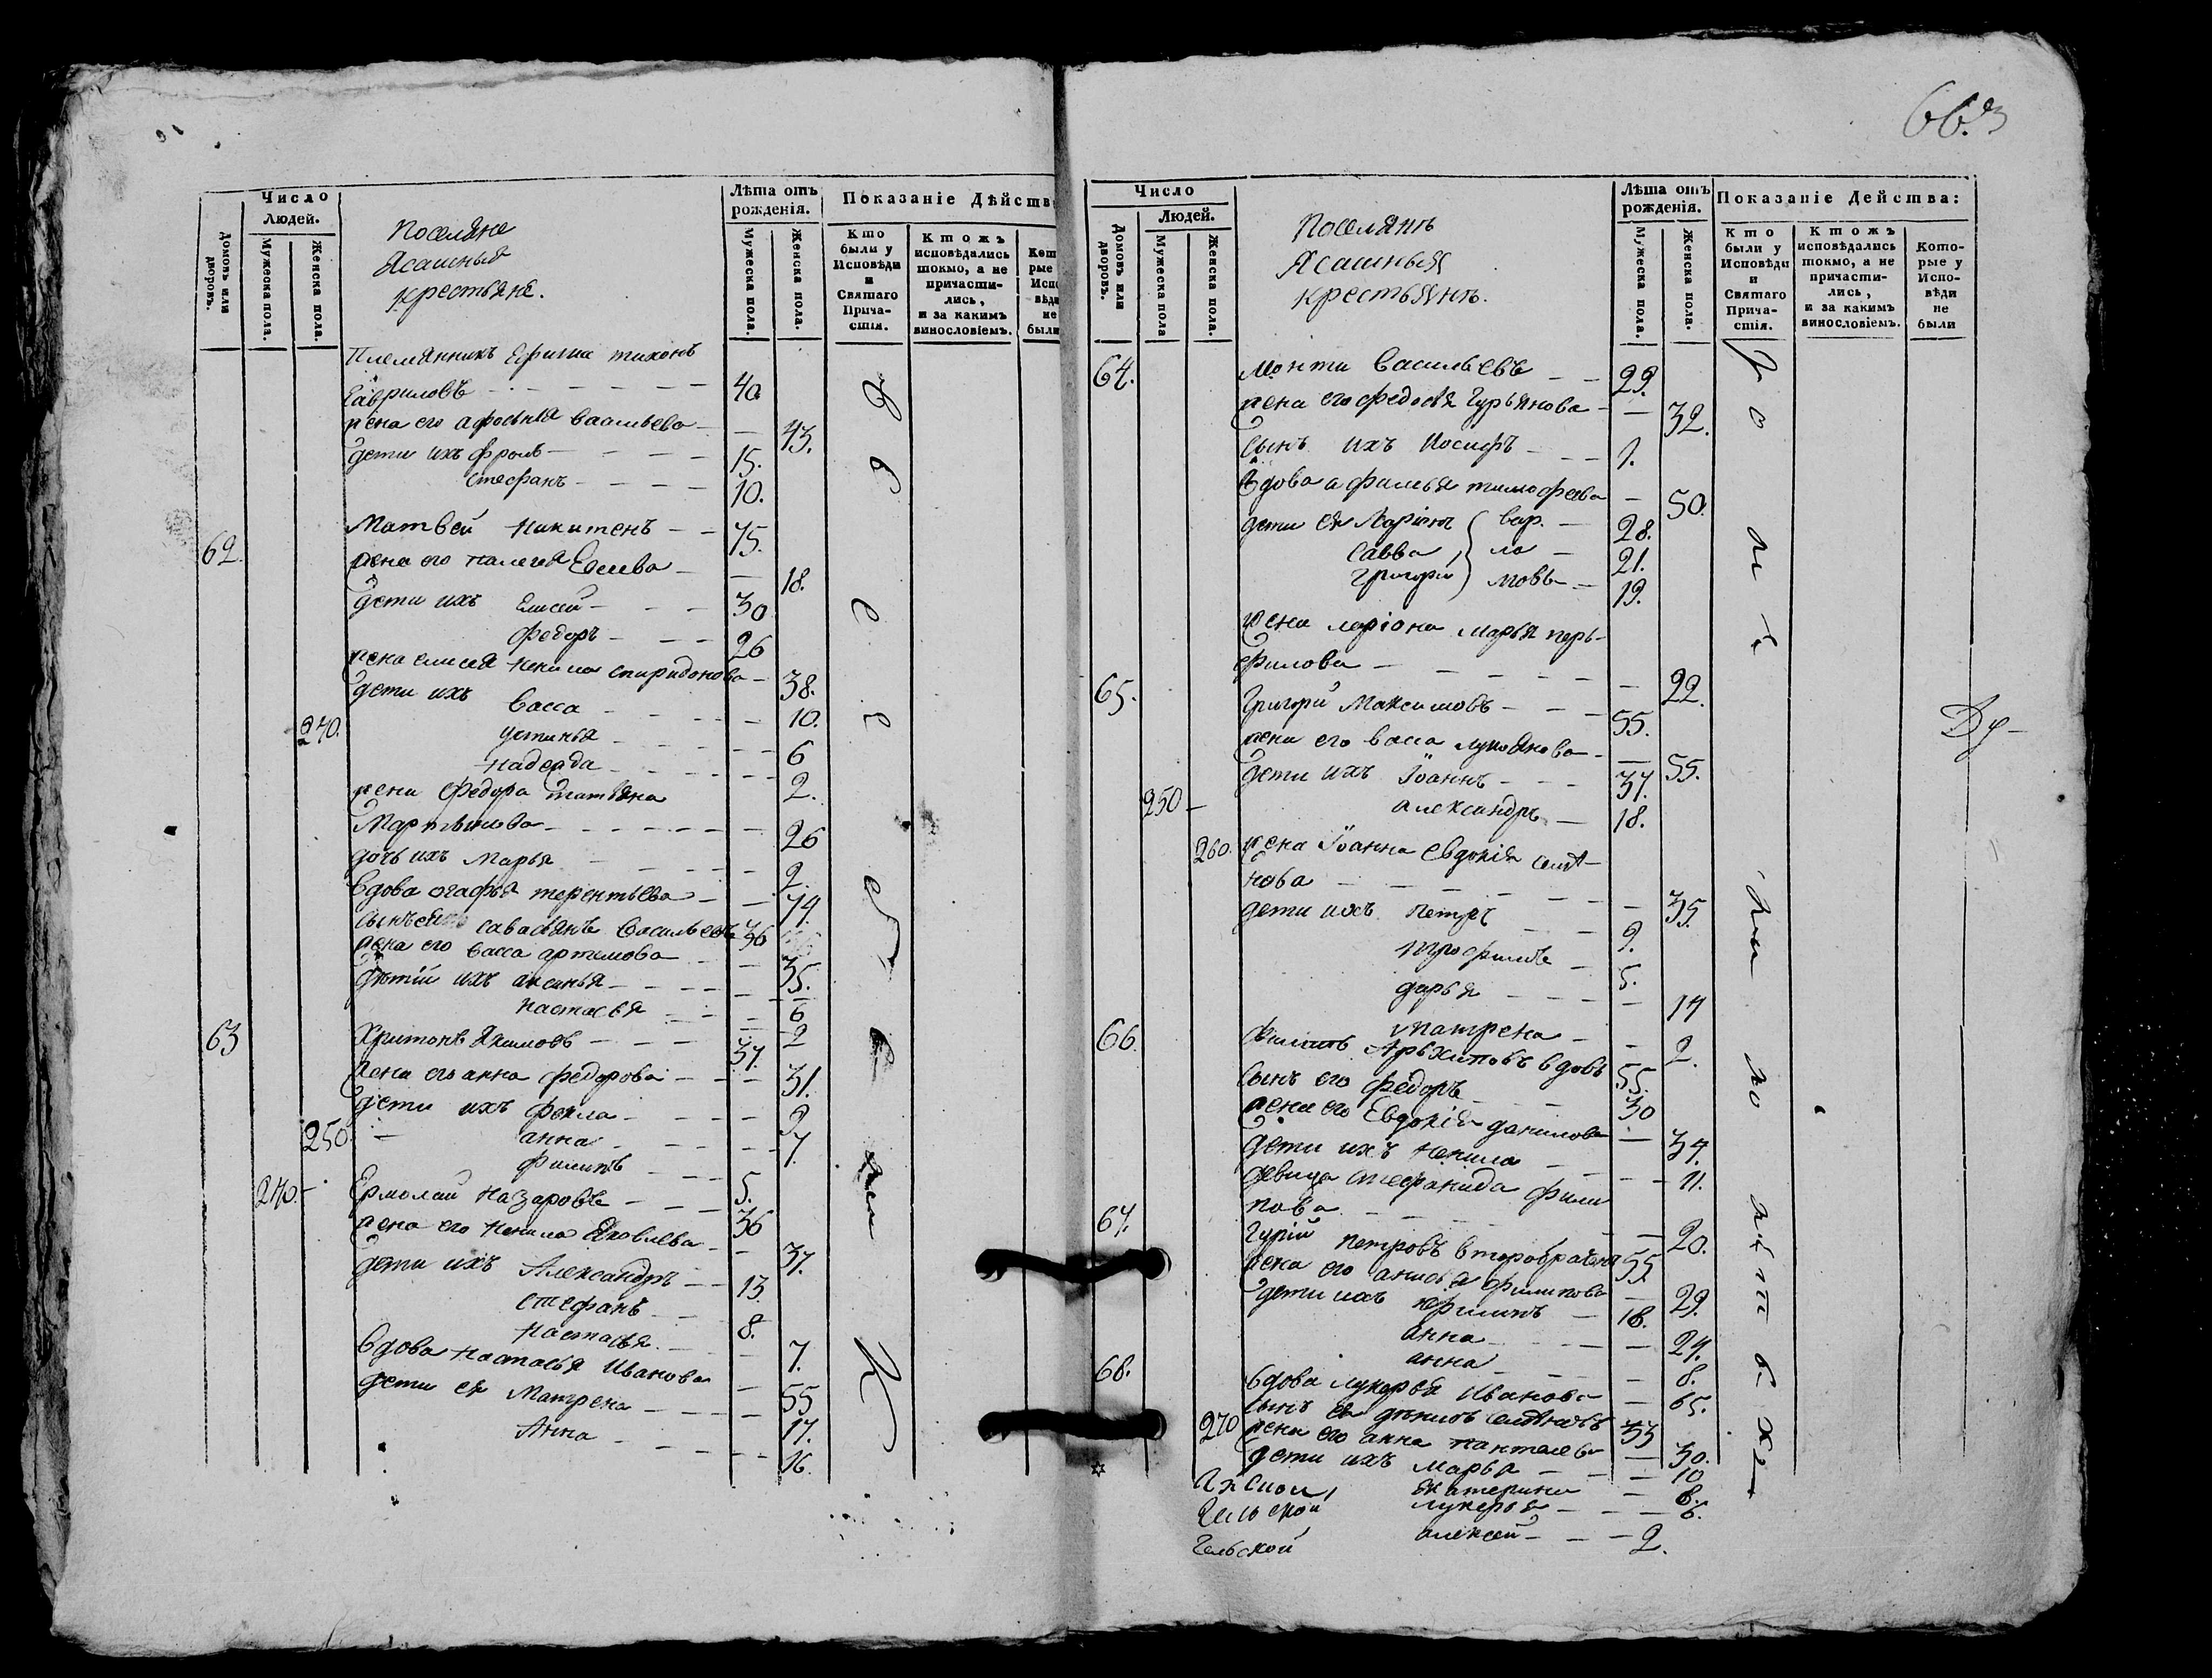 66.
Число
Людей.
Домовъ или дворовъ.
Мужеска пола.
Женска пола.
Поселяне
Ясашныя
крестьяне.
Лѣта отъ рожденія.
Мужеска пола.
Женска пола.
Показаніе Дѣйств
Кто были у Исповѣди и Святаго Прича-стія.
Ктожъ исповѣдались токмо, а не причасти-лись, и за какимъ винословіемъ.
Кот рые Испо вѣди не были
Племянникъ Ефима тихонъ
Гавриловъ 40.
жена его афосинья васильева 43.
дети ихъ фролъ 15.
Стефанъ 10.
62. Матвей Никитенъ 75.
жена его палегея 18.
дети ихъ Елисей 30
Федоръ 26
жена елисея Ненила спиридонова 38.
дети ихъ Васса 10.
240. устинья 6
надежда 2.
жена Федора татьяна
26
дочь ихъ Марья 2.
вдова агафья терентьева 74.
сынъ савастьянъ Васильевъ 36
жена его васса артемова 35.
дѣтіи ихъ аксинья 6
настасья 2
63 Харитонъ Якимовъ 37.
жена его анна федорова 31.
дети ихъ фекла 9
250 анна 7.
филипъ 5.
240. Ермолай Назаровъ 36
жена его Ненила Яковлева 37.
дети ихъ Александръ 13
стефанъ 8.
настасья 7.
вдова настасья Иванова 55
дети ея Матрена 17.
Анна 16.
Число
Людей.
Домовъ или дворовъ.
Мужеска пола
Женска пола.
Поселянъ
Ясашныя
крестьянъ.
Лѣта отъ рожденія.
Мужеска пола.
Женска пола.
Показаніе Действа:
Кто были у Исповѣди и Святаго Прича-стія.
Ктожъ исповѣдались токмо, а не причасти-лись, и за какимъ винословіемъ.
Кото-рые у Испо-вѣди не были
64. Васильевъ 29.
жена его федосья Гурьянова 32.
сынъ ихъ Иосифъ 1.
вдова афимья тимофеева 50.
дети ея Ларіонъ вар- 28.
Савва ла- 21.
Григорій мовы 19.
жена ларіона марья перь-
филова 22.
65. Григорій Максимовъ 55.
жена его васса лукоянова 55.
дети ихъ Іоаннъ 37.
250 александръ 18.
260. жена Іоанна Евдокія семе-
нова 35.
дети ихъ Петръ 9.
трофимъ 5.
дарья 14
Матрена 2.
66. Филипъ Архиповъ вдовъ 55.
сынъ его федоръ 30
жена его Евдокія данилова 34.
дети ихъ Ненила 11.
девица стефанида фили-
пова 20.
67. Гурій петровъ второбрачный 55.
жена его анисья филипова 29.
дети ихъ филипъ 18.
анна 24.
анна 8.
68. вдова лукерья Иванова 65.
сынъ ея 33
270 жена его анна пантелева 30.
дети ихъ Марья 10
Екатерина 8.
лукерья 6.
алексей 2.
Ду-